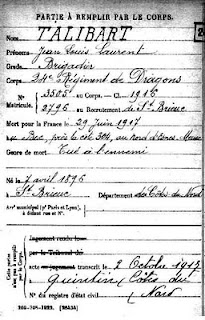 PARTIE À REMPLIR PAR LE CORPS.
Nom TALIBART
Prénoms Jean Louis Laurent
Grade Brigadier
Corps 24e Régiment de Dragons
N° 3505 au Corps. — Cl 1916
Matricule. 2796 au Recrutement de St Brieuc
Mort pour la France le 29 Juin 1917
au Bec, près la cote 304, au nord d'Esnes, Meuse
Genre de mort Tué à l'ennemi
Né le 7 avril 1896
à St Brieuc Département des Côtes du Nord
Arrt municipal (pr Paris et Lyon),
à défaut rue et N°.
Cette partie
n'est pas à remplir
par le Corps.
Jugement rendu le
par le Tribunal de
acte ou jugement transcrit le 2 Octobre 1917
à Quintin (Côtes du
Nord
N° du registre d'état civil